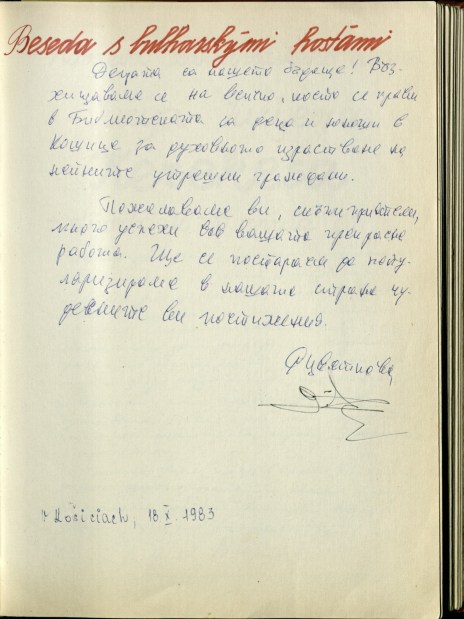 Beseda s bulharskými hosťami
Децата са нашето бъдеще! Въз-
хищаваме се на всичко, което се прави
в Библиотеката за деца и юноши в
Кошице за духовното израстване на
нейните утрешни граждани.
Пожелаваме ви, скъпи приятели,
много успехи във вашата прекрасна
работа. Ще се постараем да попу-
ляризираме в нашата страна чу-
десните ви постижения.
Цветанова
v Košiciach, 18. X. 1983